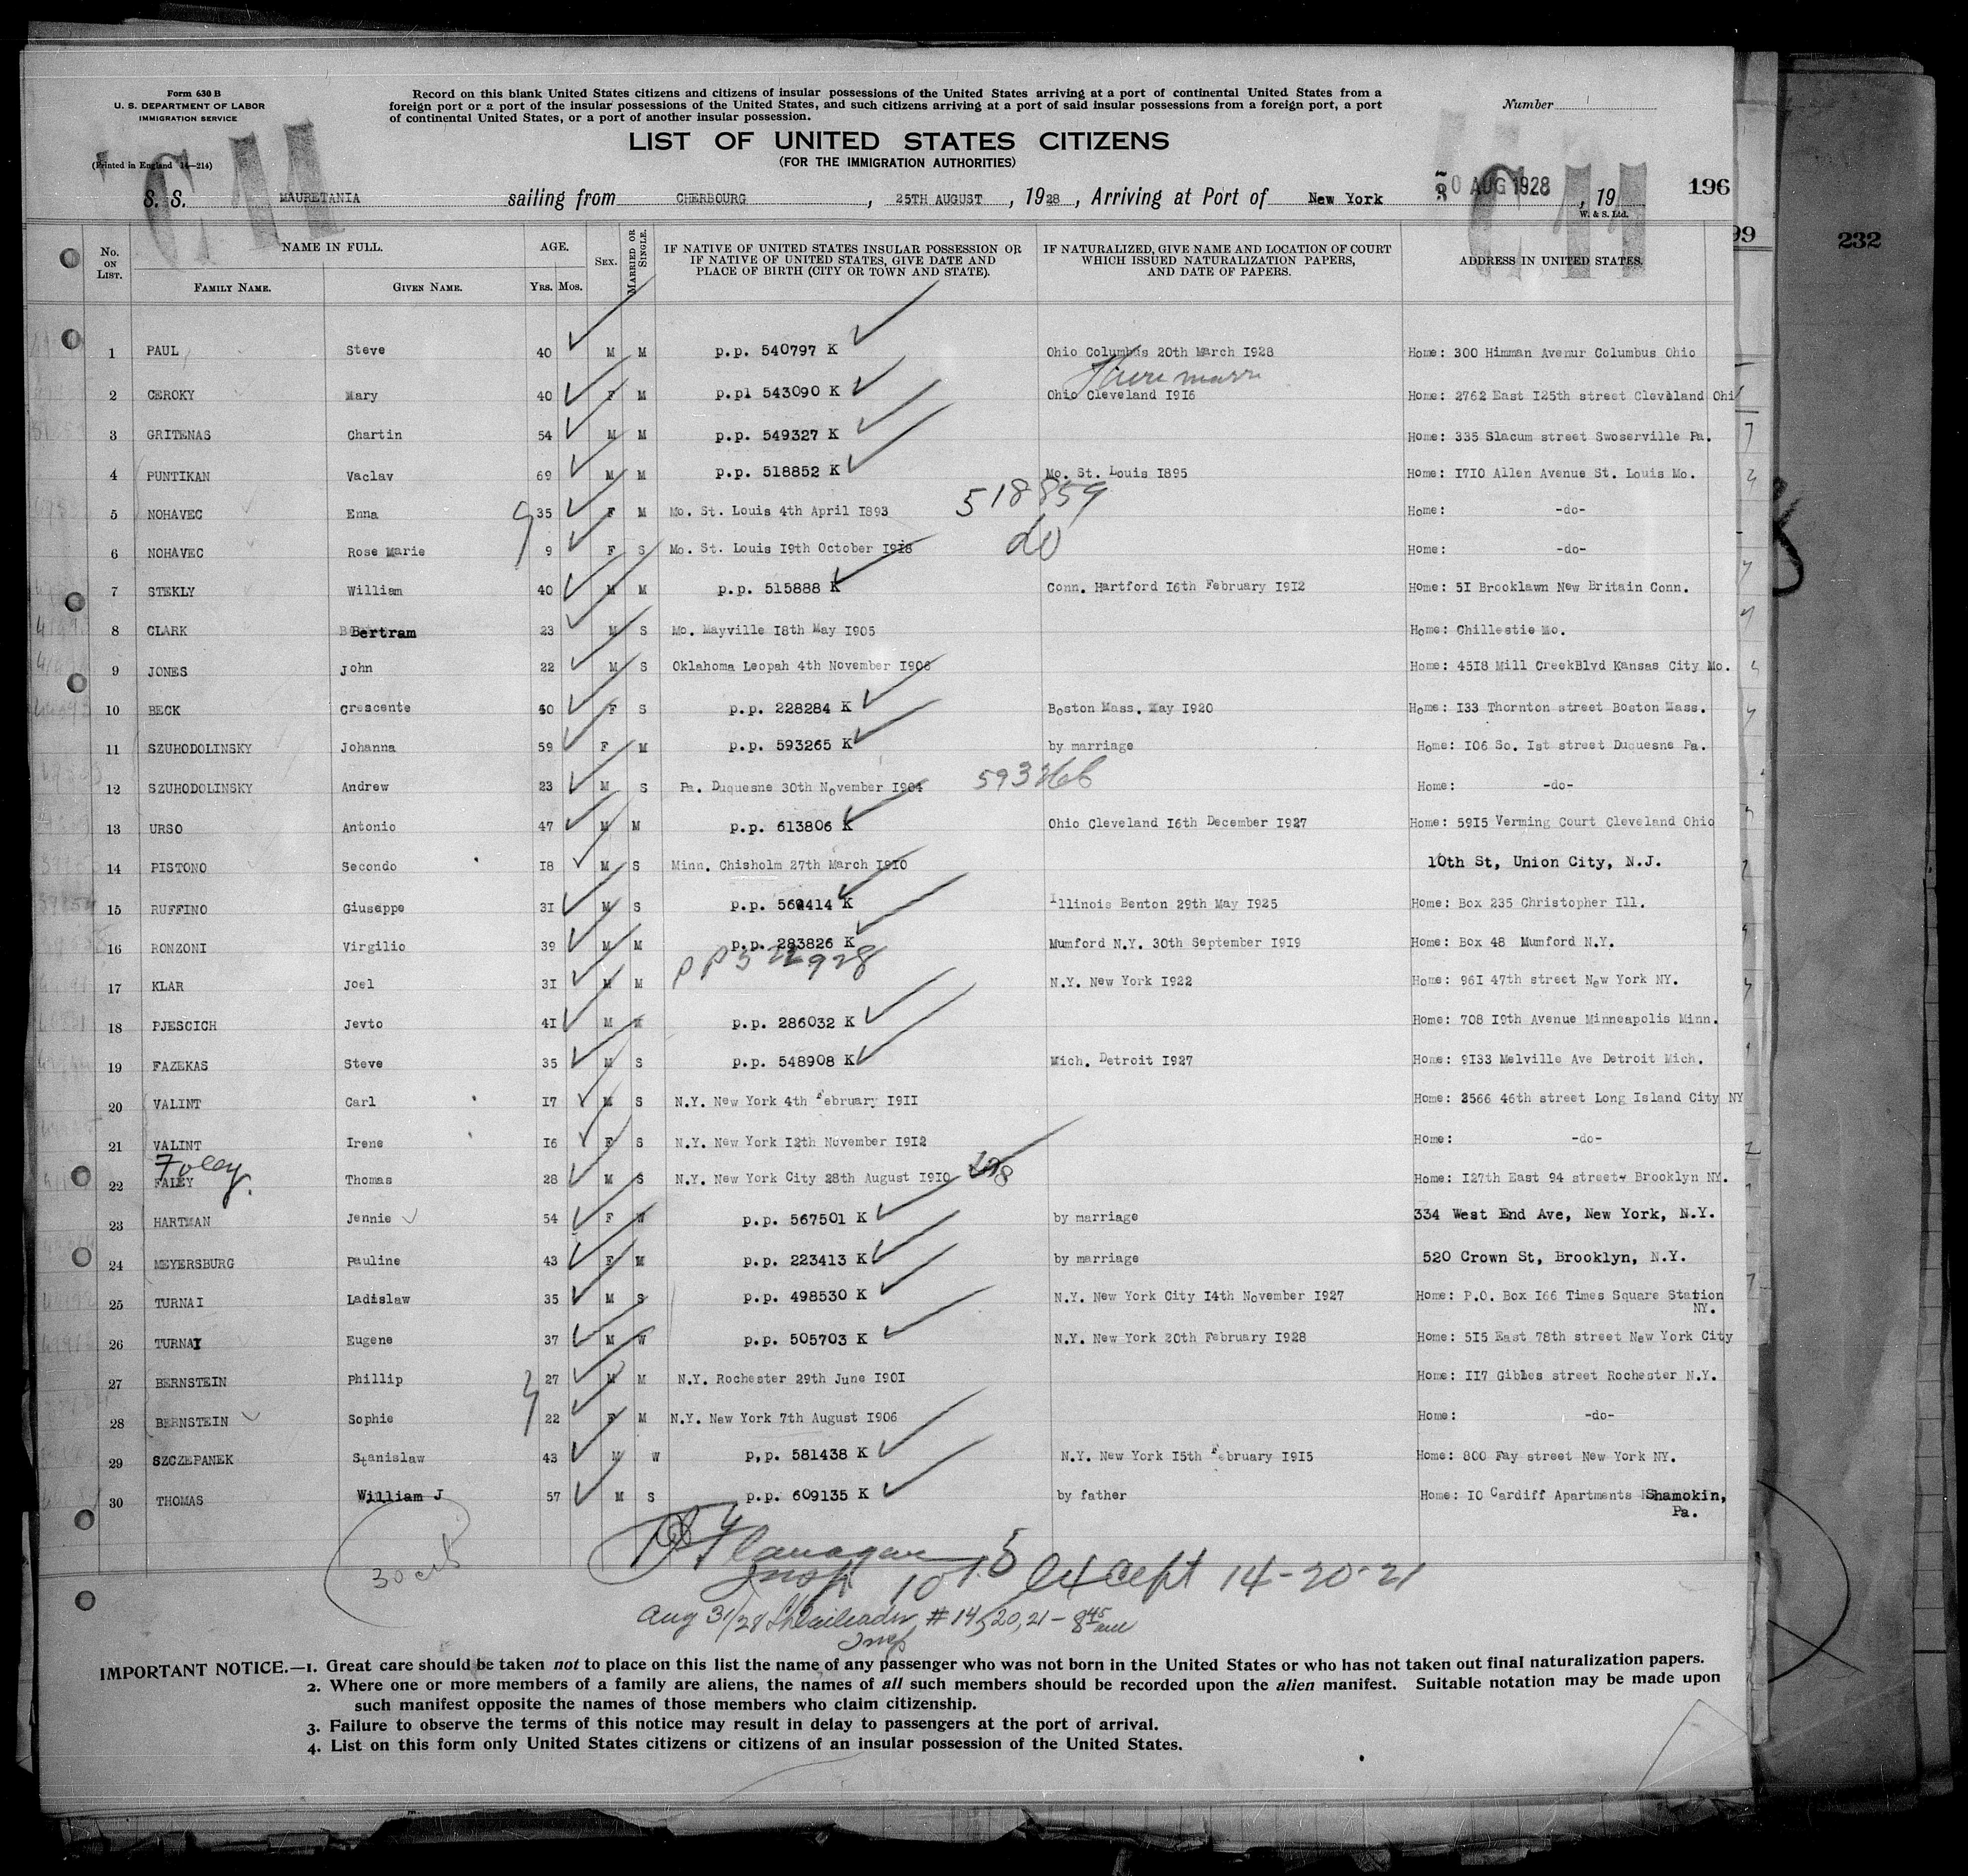 Form 630 B
U. S. DEPARTMENT OF LABOR
IMMIGRATION SERVICE
(Printed in England 14—214)
Record on this blank United States citizens and citizens of insular possessions of the United States arriving at a port of continental United States from a
foreign port or a port of the insular possessions of the United States, and such citizens arriving at a port of said insular possessions from a foreign port, a port
of continental United States, or a port of another insular possession.
Number
LIST OF UNITED STATES CITIZENS
(FOR THE IMMIGRATION AUTHORITIES)
S. S. MAURETANIA sailing from CHERBOURG, 25TH AUGUST, 1928, Arriving at Port of New York 30 AUG 1928, 19
W. & S. Ltd.
196
99
232
No. ON LIST. NAME IN FULL. AGE. SEX. MARRIED OR SINGLE. IF NATIVE OF UNITED STATES INSULAR POSSESSION OR IF NATIVE OF UNITED STATES, GIVE DATE AND PLACE OF BIRTH (CITY OR TOWN AND STATE). IF NATURALIZED, GIVE NAME AND LOCATION OF COURT WHICH ISSUED NATURALIZATION PAPERS, AND DATE OF PAPERS. ADDRESS IN UNITED STATES.
FAMILY NAME. GIVEN NAME. Yrs. Mos.
1 PAUL Steve 40 M M p.p. 540797 K Ohio Columbus 20th March 1928 Home: 300 Himman Avenur Columbus Ohio
2 CEROKY Mary 40 F M p.pl 543090 K Ohio Cleveland 1916 Home: 2762 East 125th street Cleveland Ohi
3 GRITENAS Chartin 54 M M p.p. 549327 K Home: 335 Slacum street Swoserville Pa.
4 PUNTIKAN Vaclav 69 M M p.p. 518852 K Mo. St. Louis 1895 Home: 1710 Allen Avenue St. Louis Mo.
5 NOHAVEC Enna 35 F M Mo. St. Louis 4th April 1893 518859 Home: -do-
6 NOHAVEC Rose Marie 9 F S Mo. St. Louis 19th October 1918 do Home: -do-
7 STEKLY William 40 M M p.p. 515888 K Conn. Hartford 16th February 1912 Home: 51 Brooklawn New Britain Conn.
8 CLARK Bertram 23 M S Mo. Mayville 18th May 1905 Home: Chillestie Mo.
9 JONES John 22 M S Oklahoma Leopah 4th November 1906 Home: 4518 Mill CreekBlvd Kansas City Mo.
10 BECK Crescente 50 F S p.p. 228284 K Boston Mass. May 1920 Home: 133 Thornton street Boston Mass.
11 SZUHODOLINSKY Johanna 59 F M p.p. 593265 K by marriage Home: 106 So. 1st street Duquesne Pa.
12 SZUHODOLINSKY Andrew 23 M S Pa. Duquesne 30th November 1904 593266 Home: -do-
13 URSO Antonio 47 M M p.p. 613806 K Ohio Cleveland 16th December 1927 Home: 5915 Verming Court Cleveland Ohio
14 PISTONO Secondo 18 M S Minn. Chisholm 27th March 1910 10th St, Union City, N.J.
15 RUFFINO Giuseppe 31 M S p.p. 569414 K Illinois Benton 29th May 1925 Home: Box 235 Christopher Ill.
16 RONZONI Virgilio 39 M M p.p. 283826 K Mumford N.Y. 30th September 1919 Home: Box 48 Mumford N.Y.
17 KLAR Joel 31 M M PP 522928 N.Y. New York 1922 Home: 961 47th street New York NY.
18 PJESCICH Jevto 41 M M p.p. 286032 K Home: 708 19th Avenue Minneapolis Minn.
19 FAZEKAS Steve 35 M S p.p. 548908 K Mich. Detroit 1927 Home: 9133 Melville Ave Detroit Mich.
20 VALINT Carl 17 M S N.Y. New York 4th February 1911 Home: 2566 46th street Long Island City NY
21 VALINT Irene 16 F S N.Y. New York 12th November 1912 Home: -do-
Foley
22 FALEY Thomas 28 M S N.Y. New York City 28th August 1910 Home: 127th East 94 street Brooklyn NY.
23 HARTMAN Jennie 54 F W p.p. 567501 K by marriage 334 West End Ave, New York, N.Y.
24 MEYERSBURG Pauline 43 F M p.p. 223413 K by marriage 520 Crown St, Brooklyn, N.Y.
25 TURNAI Ladislaw 35 M S p.p. 498530 K N.Y. New York City 14th November 1927 Home: P.O. Box 166 Times Square Station NY.
26 TURNAY Eugene 37 M W p.p. 505703 K N.Y. New York 20th February 1928 Home: 515 East 78th street New York City
27 BERNSTEIN Phillip 27 M M N.Y. Rochester 29th June 1901 Home: 117 Gibbes street Rochester N.Y.
28 BERNSTEIN Sophie 22 F M N.Y. New York 7th August 1906 Home: -do-
29 SZCZEPANEK Stanislaw 43 M W p,p. 581438 K N.Y. New York 15th February 1915 Home: 800 Fay street New York NY.
30 THOMAS William J 57 M S p.p. 609135 K by father Home: 10 Cardiff Apartments Shamokin, Pa.
Flanagan
Insp. 10 15 except 14-20-21
30
Aug 31/28 #14, 20, 21 - 8 45 am
Insp
IMPORTANT NOTICE.—1. Great care should be taken not to place on this list the name of any passenger who was not born in the United States or who has not taken out final naturalization papers.
2. Where one or more members of a family are aliens, the names of all such members should be recorded upon the alien manifest. Suitable notation may be made upon
such manifest opposite the names of those members who claim citizenship.
3. Failure to observe the terms of this notice may result in delay to passengers at the port of arrival.
4. List on this form only United States citizens or citizens of an insular possession of the United States.